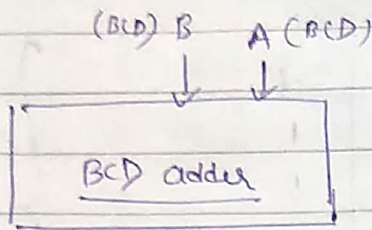 (BCD) B A (BCD)
BCD adder